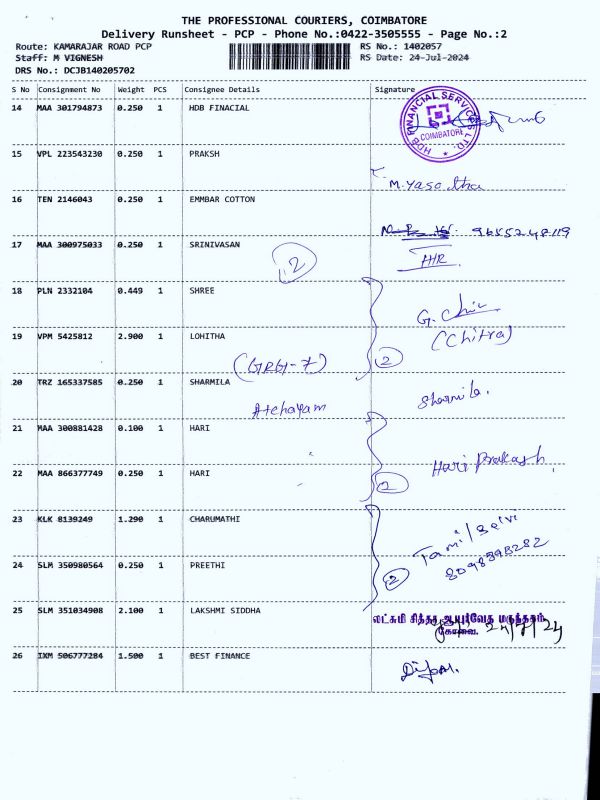 THE PROFESSIONAL COURIERS, COIMBATORE
Delivery Runsheet - PCP - Phone No.:0422-3505555 - Page No.:2
Route: KAMARAJAR ROAD PCP RS No.: 1402057
Staff: M VIGNESH RS Date: 24-Jul-2024
DRS No.: DCJB140205702
S No Consignment No Weight PCS Consignee Details Signature
14 MAA 301794873 0.250 1 HDB FINACIAL
HDB FINANCIAL SERVICES LTD.
COIMBATORE
15 VPL 223543230 0.250 1 PRAKSH
M. Yasodha
16 TEN 2146043 0.250 1 EMMBAR COTTON
9655248119
17 MAA 300975033 0.250 1 SRINIVASAN
2
18 PLN 2332104 0.449 1 SHREE
G. Chi
19 VPM 5425812 2.900 1 LOHITHA (Chitra)
2
(GRGI-7)
20 TRZ 165337585 0.250 1 SHARMILA Sharmila.
Atchayam
21 MAA 300881428 0.100 1 HARI
Hari Prakash
22 MAA 866377749 0.250 1 HARI
2
23 KLK 8139249 1.290 1 CHARUMATHI
Tamil Selvi
24 SLM 350980564 0.250 1 PREETHI
2
25 SLM 351034908 2.100 1 LAKSHMI SIDDHA லட்சுமி சித்தா ஆயுர்வேத மருந்தகம்
கோவை. 24/7/24
26 IXM 506777284 1.500 1 BEST FINANCE